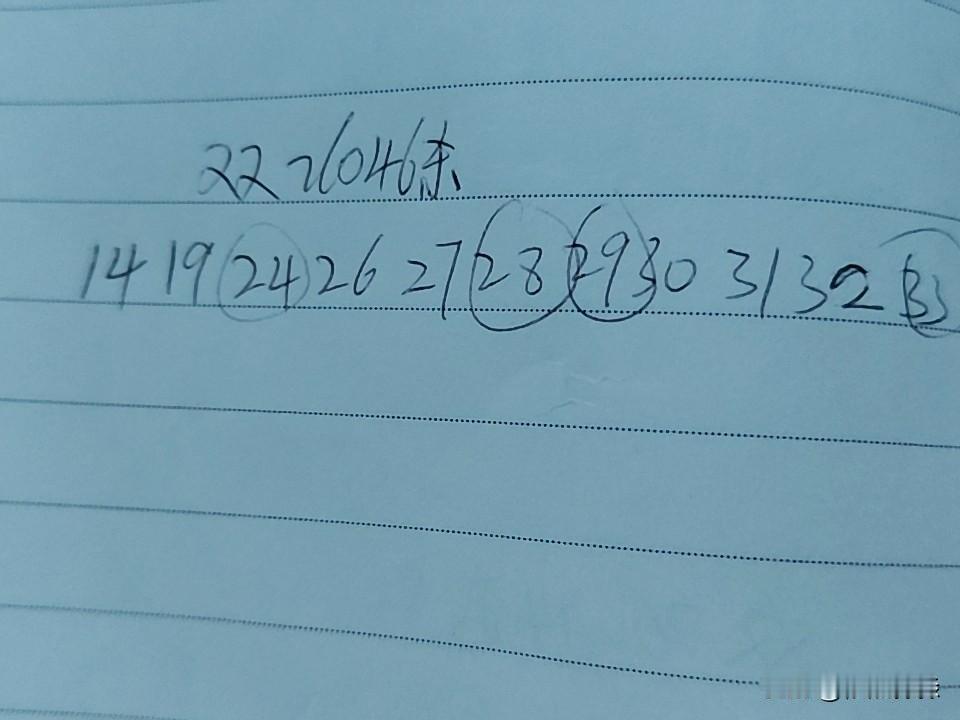 22 26046条
14 19 24 26 27 28 29 30 31 32 33